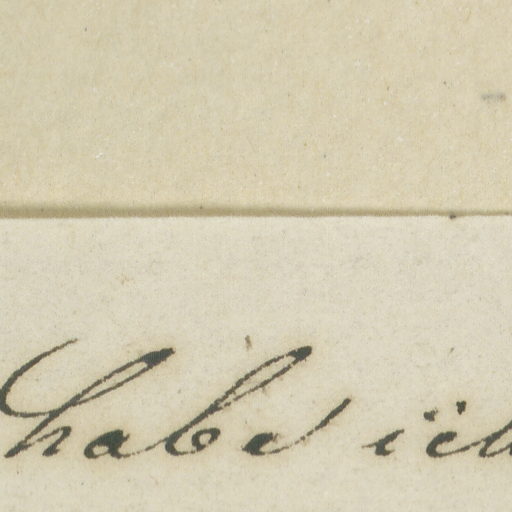 habe ich